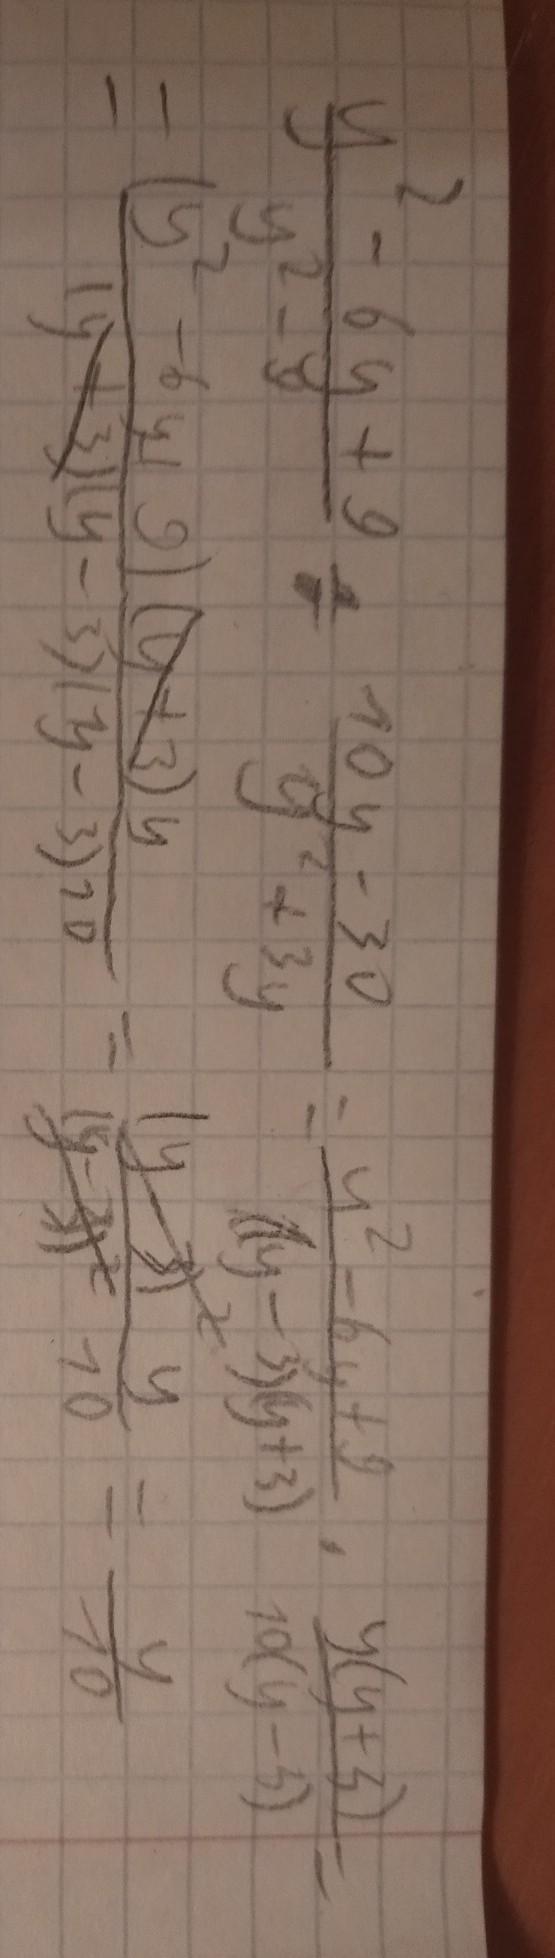 y² - 6y + 9 / y² - 9 ÷ 10y - 30 / y² + 3y = y² - 6y + 9 / (y - 3)(y + 3) · y(y + 3) / 10(y - 3) =
= (y² - 6y + 9)(y + 3)y / (y + 3)(y - 3)(y - 3)10 = (y - 3)² y / (y - 3)² 10 = y / 10